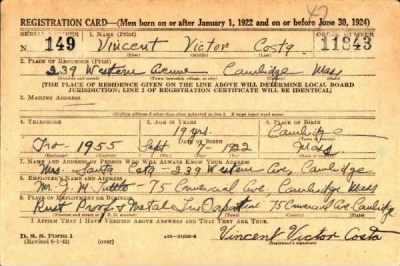 47
REGISTRATION CARD—(Men born on or after January 1, 1922 and on or before June 30, 1924)
SERIAL NUMBER 1. NAME (Print) ORDER NUMBER
N 149 Vincent Victor Costa 11843
(First) (Middle) (Last)
2. PLACE OF RESIDENCE (Print)
239 Western Avenue Cambridge Mass
(Number and street) (Town, township, village, or city) (County) (State)
[THE PLACE OF RESIDENCE GIVEN ON THE LINE ABOVE WILL DETERMINE LOCAL BOARD
JURISDICTION; LINE 2 OF REGISTRATION CERTIFICATE WILL BE IDENTICAL]
3. MAILING ADDRESS
[Mailing address if other than place indicated on line 2. If same insert word same]
4. TELEPHONE 5. AGE IN YEARS 6. PLACE OF BIRTH
19 yrs. Cambridge
DATE OF BIRTH
Tro 1955 Sept 1922 Mass
7. NAME AND ADDRESS OF PERSON WHO WILL ALWAYS KNOW YOUR ADDRESS
Mrs. Santa Costa - 239 Western Ave, Cambridge
8. EMPLOYER'S NAME AND ADDRESS
Mr. J. W. Tuttle - 75 Comercial Ave, Cambridge Mass
9. PLACE OF EMPLOYMENT OR BUSINESS
Rust Proof & Metal 75 Comercial Ave Cambridge
I AFFIRM THAT I HAVE VERIFIED ABOVE ANSWERS AND THAT THEY ARE TRUE.
D. S. S. Form 1
(Revised 6-1-42) (over)
Vincent Victor Costa